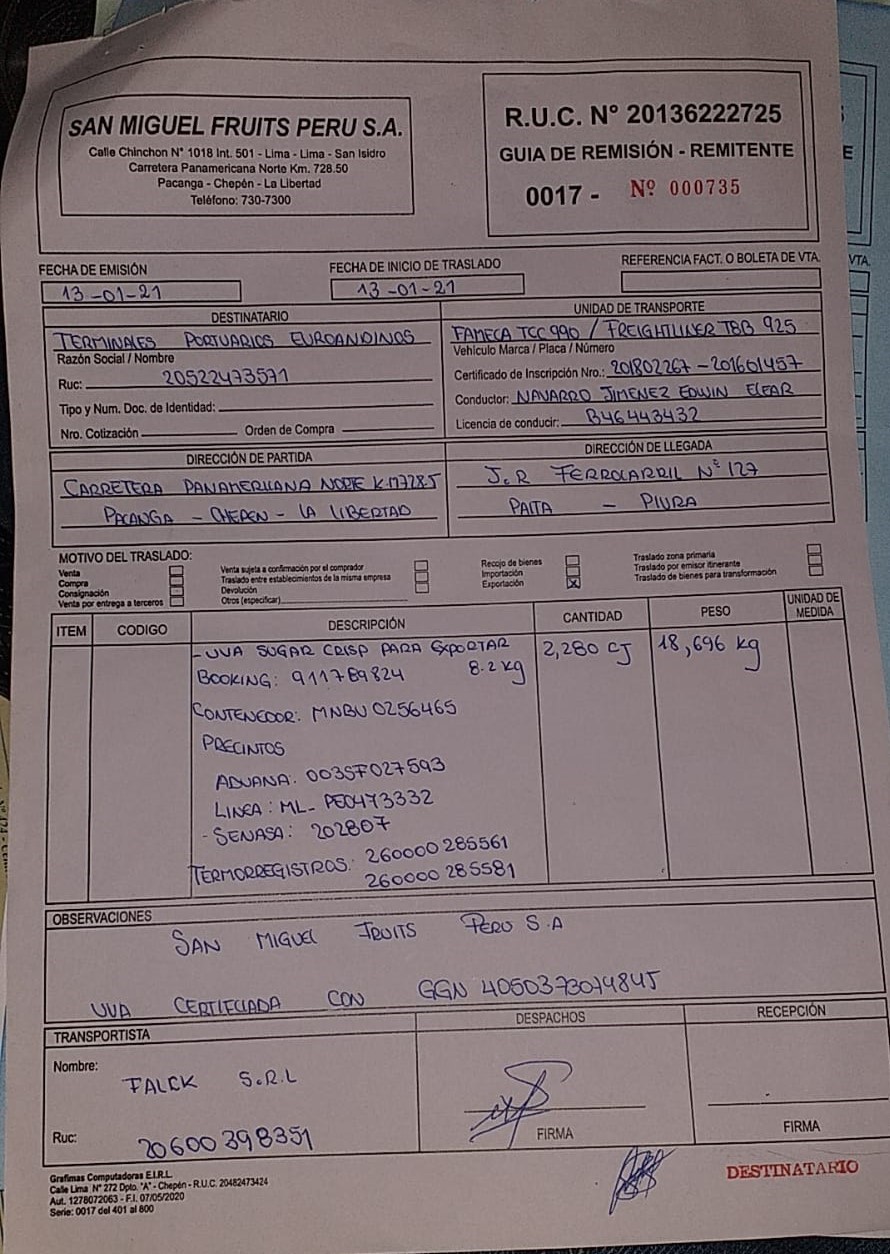 SAN MIGUEL FRUITS PERU S.A.
Calle Chinchon N° 1018 Int. 501 - Lima - Lima - San Isidro
Carretera Panamericana Norte Km. 728.50
Pacanga - Chepén - La Libertad
Teléfono: 730-7300
R.U.C. N° 20136222725
GUIA DE REMISIÓN - REMITENTE
0017 - Nº 000735
FECHA DE EMISIÓN
13-01-21
FECHA DE INICIO DE TRASLADO
13-01-21
REFERENCIA FACT. O BOLETA DE VTA.
DESTINATARIO
TERMINALES PORTUARIOS EUROANDINOS
Razón Social / Nombre
Ruc: 20522473571
Tipo y Num. Doc. de Identidad:
Nro. Cotización Orden de Compra
UNIDAD DE TRANSPORTE
FAMECA TCC 990 / FREIGHTLINER T8B 925
Vehículo Marca / Placa / Número
Certificado de Inscripción Nro.: 201802267-201601457
Conductor: NAVARRO JIMENEZ EDWIN
Licencia de conducir: B46443432
DIRECCIÓN DE PARTIDA
CARRETERA PANAMERICANA NORTE K-M728.5
PACANGA - CHEPEN - LA LIBERTAD
DIRECCIÓN DE LLEGADA
J.R FERROCARRIL N° 127
PAITA - PIURA
MOTIVO DEL TRASLADO:
Venta
Compra
Consignación
Venta por entrega a terceros
Venta sujeta a confirmación por el comprador
Traslado entre establecimientos de la misma empresa
Devolución
Otros (especificar)
Recojo de bienes
Importación
Exportación X
Traslado zona primaria
Traslado por emisor itinerante
Traslado de bienes para transformación
ITEM CODIGO DESCRIPCIÓN CANTIDAD PESO UNIDAD DE MEDIDA
- UVA SUGAR CRISP PARA EXPORTAR 2,280 CJ 18,696 kg
BOOKING: 911789824 8.2 kg
CONTENEDOR: MNBU 0256465
PRECINTOS
ADUANA: 0035F027593
LINEA: ML- PE0473332
- SENASA: 202807
TERMORREGISTROS: 260000 285561
260000 285581
OBSERVACIONES
SAN MIGUEL FRUITS PERU S.A
UVA CERTIFICADA CON GGN 4050373074845
TRANSPORTISTA
Nombre: FALCK S.R.L
Ruc: 20600398351
DESPACHOS
FIRMA
RECEPCIÓN
FIRMA
Grafimas Computadoras E.I.R.L.
Calle Lima N° 272 Dpto. "A" - Chepén - R.U.C. 20482473424
Aut. 1278072063 - F.I. 07/05/2020
Serie: 0017 del 401 al 800
DESTINATARIO
VTA.
E